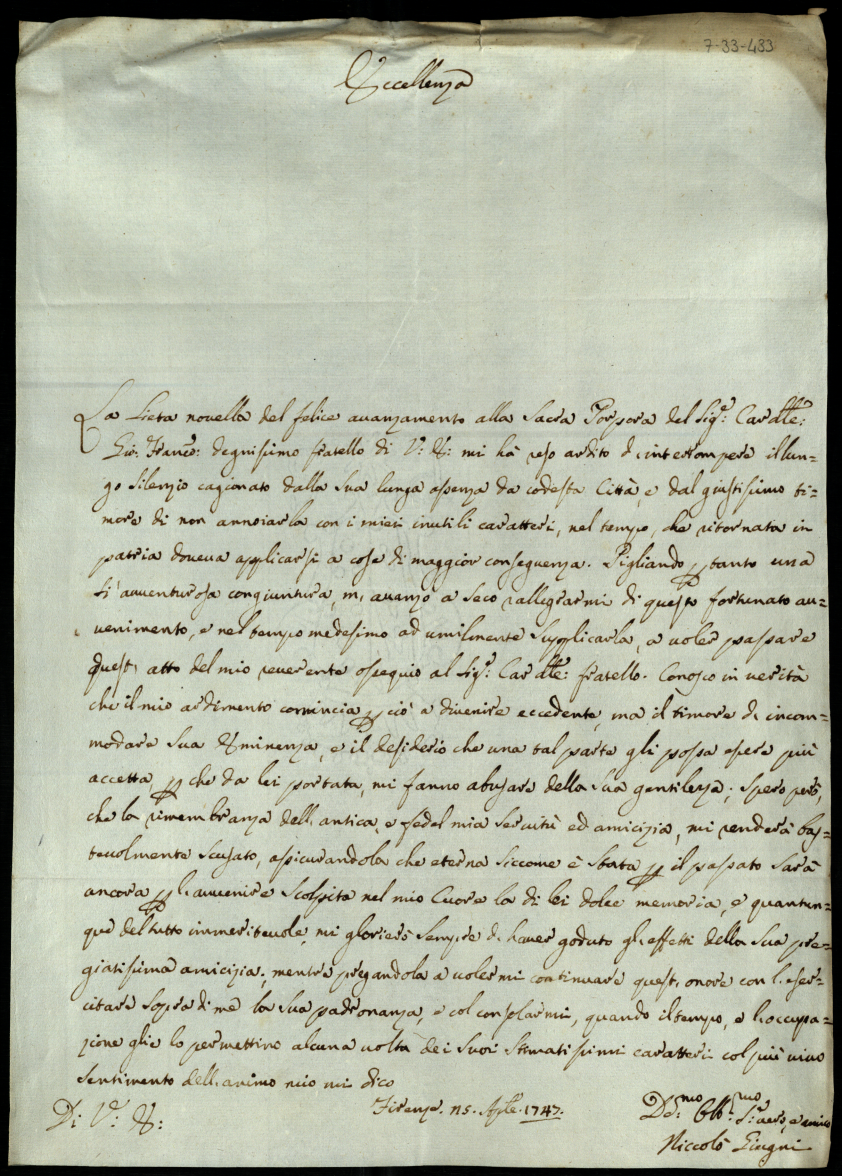 7-33-433
Eccellenza
La Lieta nouella del felice auanzamento alla Sacra Porpora del Sig.r: Card.le:
Gio: Franc.o: degnissimo fratello di V: E: mi hà reso ardito d'interrompere il lun-
go silenzio cagionato dalla Sua lunga assenza da codesta Città, e dal giustissimo ti-
more di non annoiarla con i miei inutili caratteri, nel tempo, che ritornata in
patria doueua applicarsi a cose di maggior conseguenza. Pigliando p tanto una
sì auuenturosa congiuntura, m'auanzo a seco rallegrarmi di questo fortunato au-
uenimento, e nel tempo medesimo ad umilmente Supplicarla, a uoler passare
quest'atto del mio reuerente ossequio al Sig.r: Card.le: fratello. Conosco in uerità
che il mio ardimento comincia p ciò a diuenire eccedente, ma il timore d'incom-
modare Sua Eminenza, e il desiderio che una tal parte gli possa essere più
accetta, p che da lei portata, mi fanno abusare della Sua gentilezza; Spero però,
che la rimembranza dell'antica, e fedel mia Seruitù ed amicizia, mi renderà bas-
teuolmente Scusato, assicurandola che eterna Siccome è Stata p il passato Sarà
ancora p l'auuenire Scolpita nel mio Cuore la di lei dolce memoria, e quantun-
que del tutto immeriteuole, mi glorierò Sempre d'hauer goduto gl'effetti della Sua pre-
giatissima amicizia; mentre pregandola a uolermi continuare quest'onore con l'eser-
citare Sopra di me la Sua padronanza, e col consolarmi, quando il tempo, e l'occupa-
zione glie lo permettino alcuna uolta dei Suoi Stimatissimi caratteri col più uiuo
Sentimento dell'animo mio mi dico
Di V: E: Firenze. 15. Aple. 1747. Deu.mo Obb.mo S.r uero, e amico
Niccolò Giugni